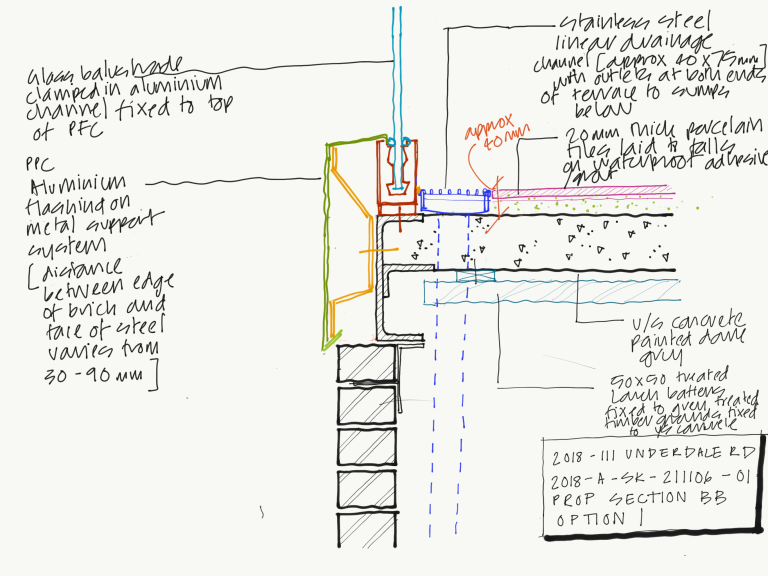 Glass balustrade
clamped in aluminium
channel fixed to top
of PFC
PPC
Aluminium
flashing on
metal support
system
[distance
between edge
of brick and
face of steel
varies from
30-90mm]
approx
40mm
stainless steel
linear drainage
channel [approx 40x75mm]
with outlets at both ends
of terrace to sumps
below
20mm thick porcelain
tiles laid to falls
on waterproof adhesive
/grout
u/s concrete
painted dark
grey
50x50 treated
larch battens
fixed to treated
timber grounds fixed
to u/s concrete
2018-111 UNDERDALE RD
2018-A-SK-211106-01
PROP SECTION BB
OPTION 1